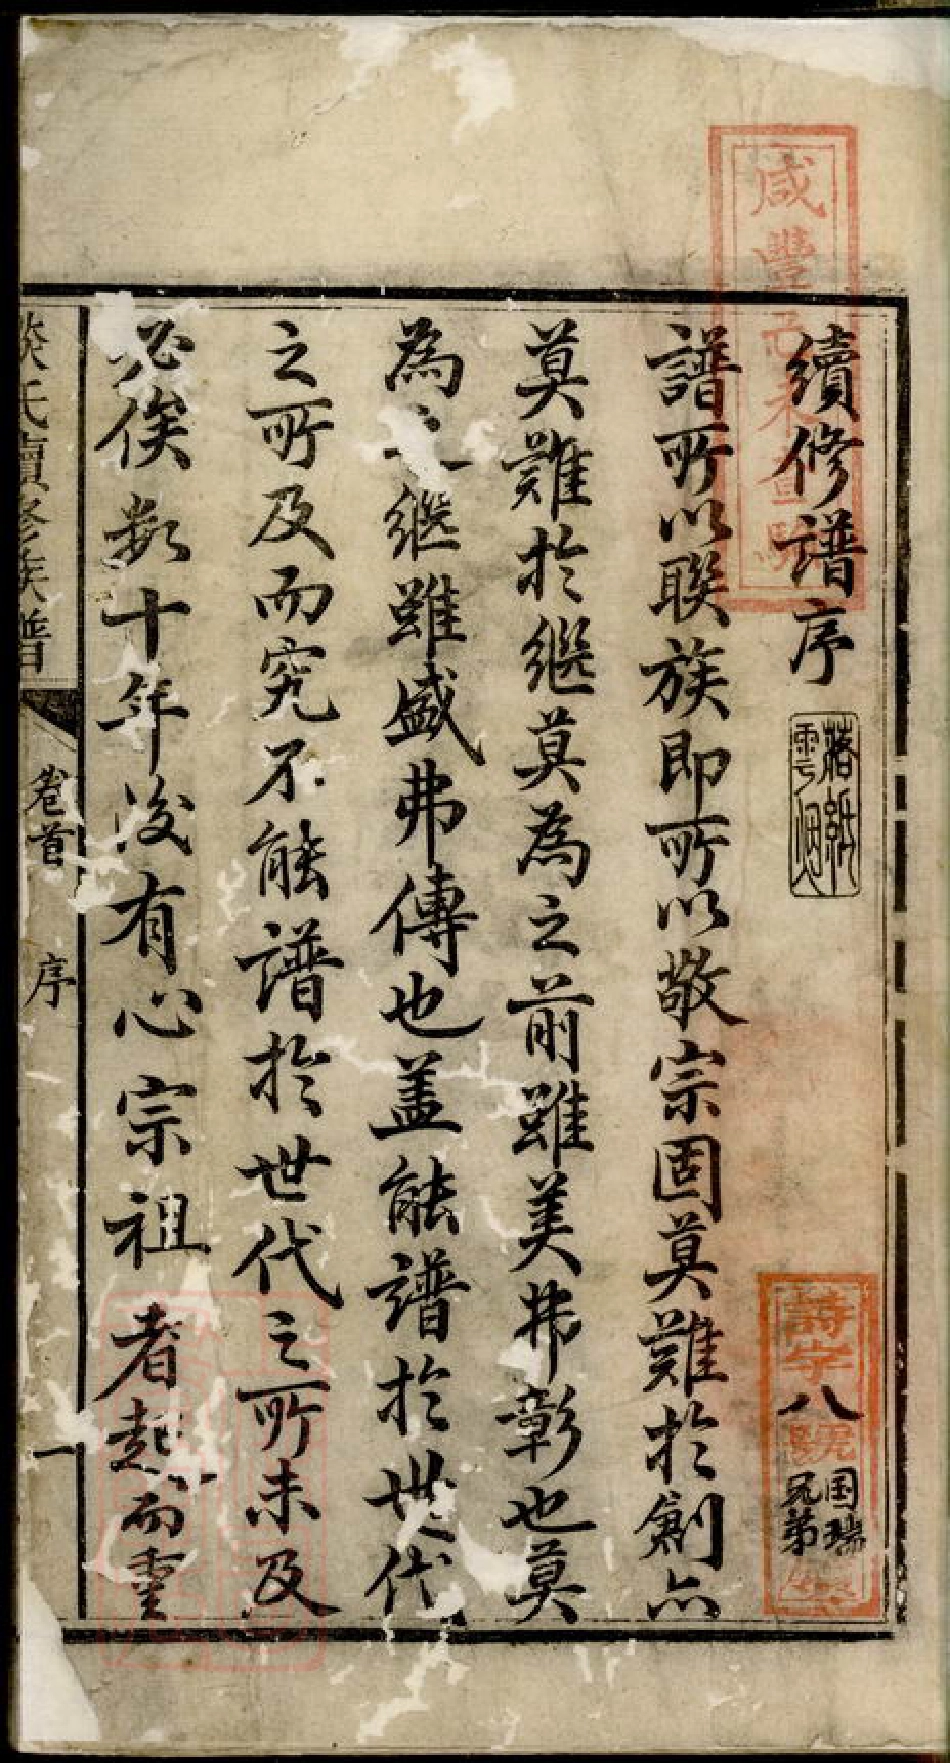 續修譜序
落紙雲烟
譜所以聯族即所以敬宗固莫難於創亦
莫難於繼莫為之前雖美弗彰也莫
為之繼雖盛弗傳也盖能譜於世代
之所及而究不能譜於世代之所未及
必俟数十年後有心宗祖者起而重
氏續修族譜
卷首
序
一
咸豐己未
詩字八號
国瑞
兄弟